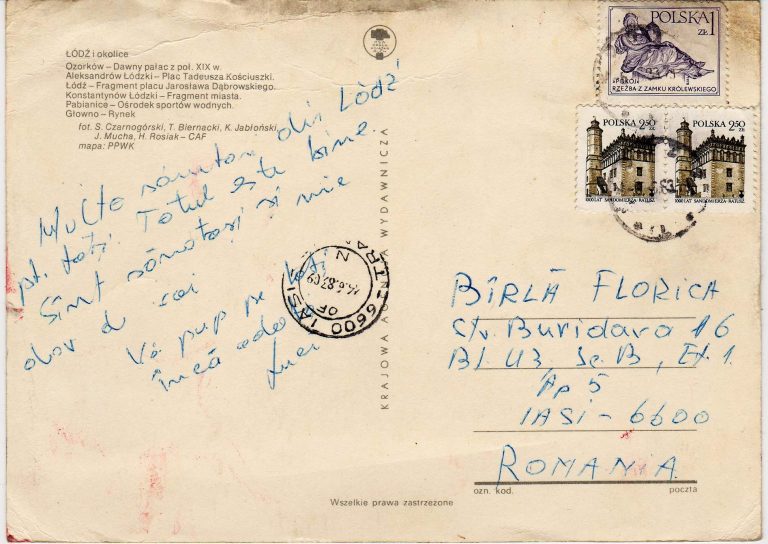 ŁÓDŹ i okolice
Ozorków – Dawny pałac z poł. XIX w.
Aleksandrów Łódzki – Plac Tadeusza Kościuszki.
Łódź – Fragment placu Jarosława Dąbrowskiego.
Konstantynów Łódzki – Fragment miasta.
Pabianice – Ośrodek sportów wodnych.
Głowno – Rynek
fot. S. Czarnogórski, T. Biernacki, K. Jabłoński,
J. Mucha, H. Rosiak – CAF
mapa: PPWK
Multe din Łódź
pt. toți. Totul este bine.
Sînt sănătoși și mie
dor d voi
Vă pup pe toți
încă odo
KRAJOWA AGENCJA WYDAWNICZA
6600 IASI
14.6.87.09
POLSKA 1
ZŁ
"POKÓJ"
RZEŹBA Z ZAMKU KRÓLEWSKIEGO
POLSKA 2,50
zł
1000 LAT SANDOMIERZA-RATUSZ
POLSKA 2,50
zł
1000 LAT SANDOMIERZA-RATUSZ
BÎRLĂ FLORICA
Str. Buridava 16
Bl U3 Sc B, Et 1.
Ap 5
IASI – 6600
ROMANIA
ozn. kod. poczta
Wszelkie prawa zastrzeżone